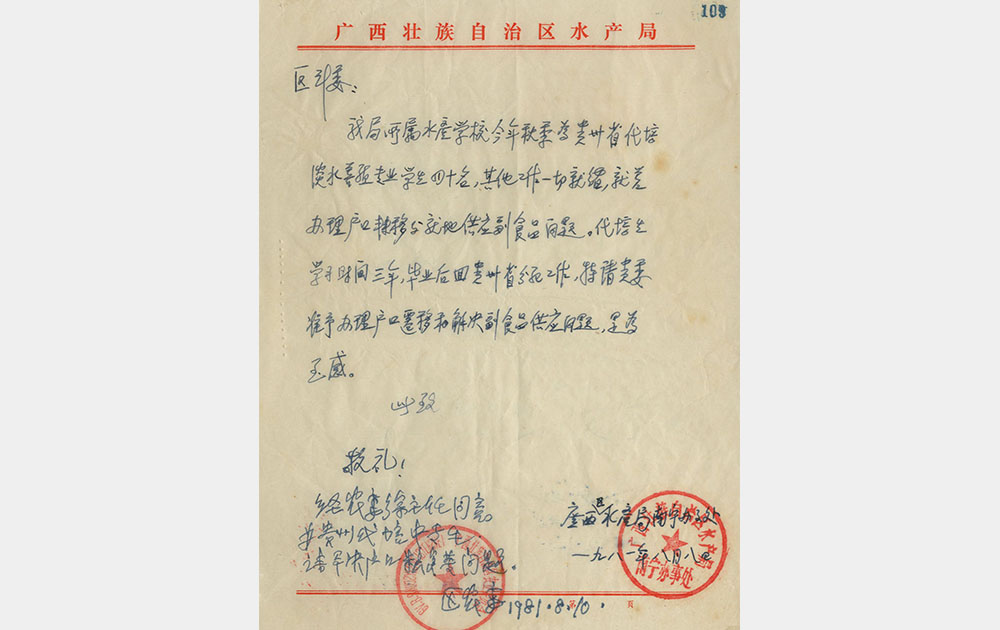 109
广西壮族自治区水产局
区计委：
我局所属水产学校今年秋季为贵州省代培
淡水养殖专业学生四十名，其他工作一切就绪，就差
办理户口转移与就地供应副食品问题。代培生
学习时间三年，毕业后回贵州省分配工作，特请贵委
准予办理户口迁移和解决副食品供应问题，是为
至感。
此致
敬礼！
广西区水产局南宁办事处
一九八一年八月八日
南宁办事处
经农委徐主任同意
为贵州代培中专生
请解决户口粮食等问题。
区农委 1981.8.10.
第 页